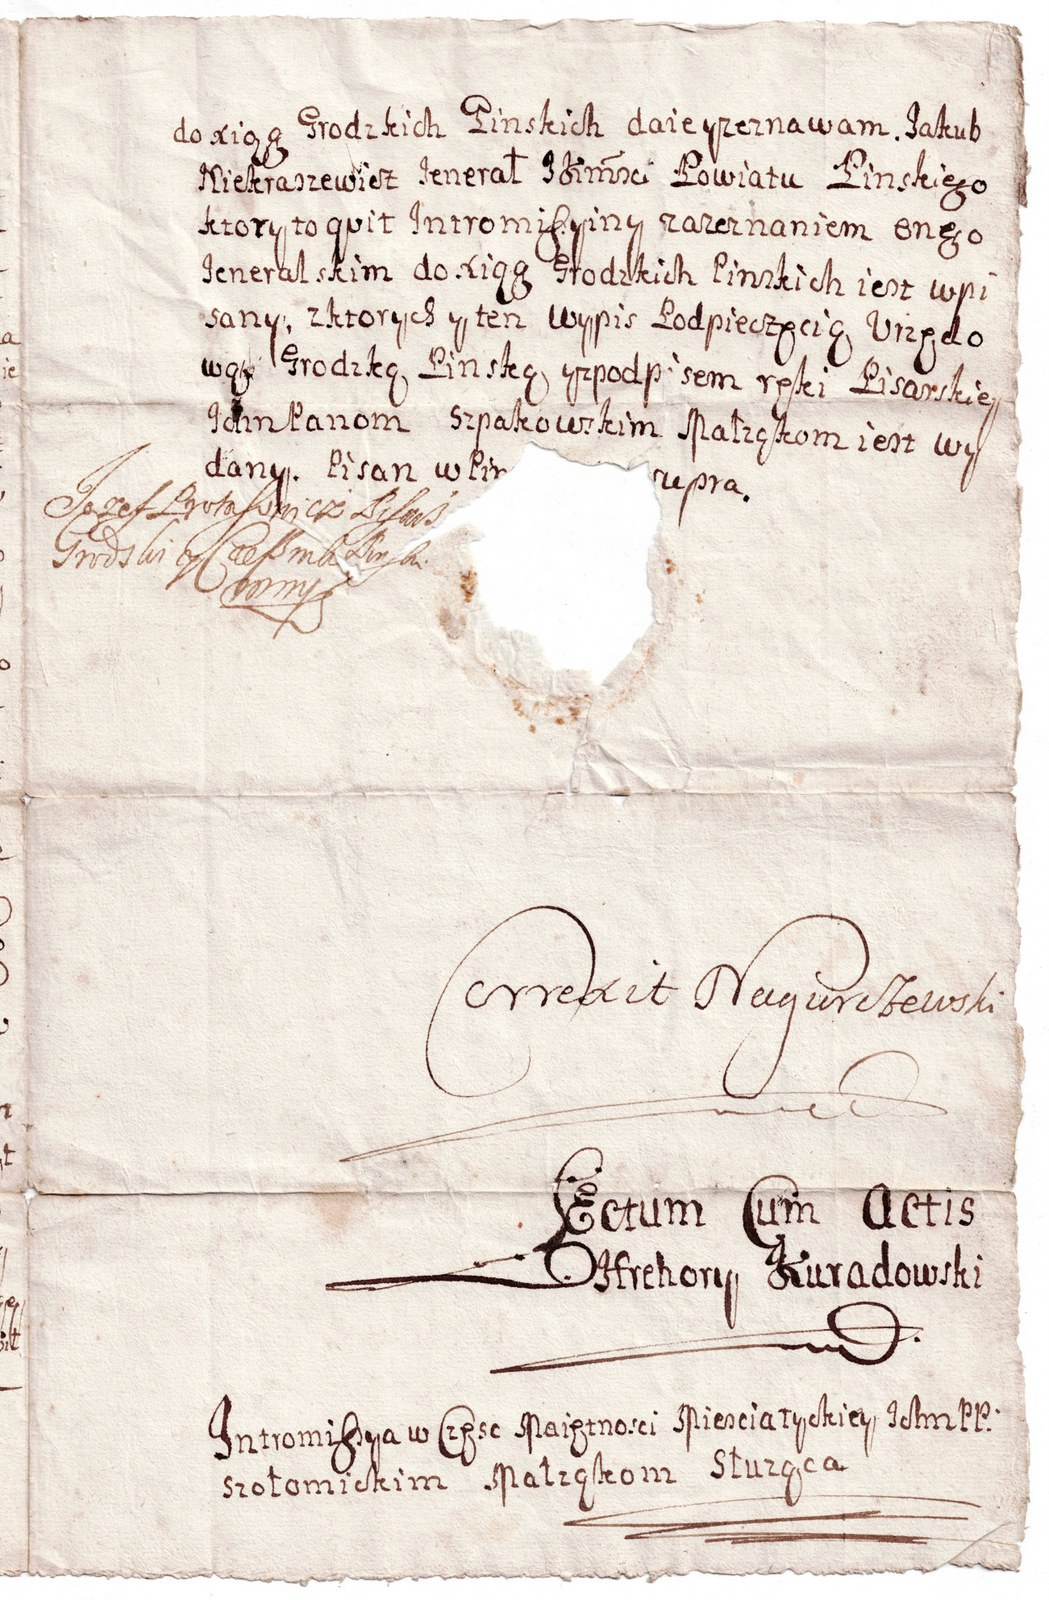 do xiąg Grodzkich Pinskich daię y zeznawam. Jakub
Niekraszewicz Jenerał JKrMsci Powiatu Pinskiego
ktory to qvit Intromissyiny zazeznaniem onego
Jeneralskim do xiąg Grodzkich Pinskich iest wpi
sany, zktorych y ten wypis Podpieczęcią Urzędo
wą Grodzką Pinską yzpodpisem ręki Pisarskiey
Ichm Panom Szpakowskim Małżąkom iest wy
dany. Pisan wPin supra.
Jozef Protassowicz Pisarz
Grodski
Correxit Nagurczewski
Lectum Cum Actis
Hrehory Kuradowski
Intromissya w Częsc Maiętnosci Miesciatyckiey Ichm PP.
Szołomickim Małżąkom Słuząca